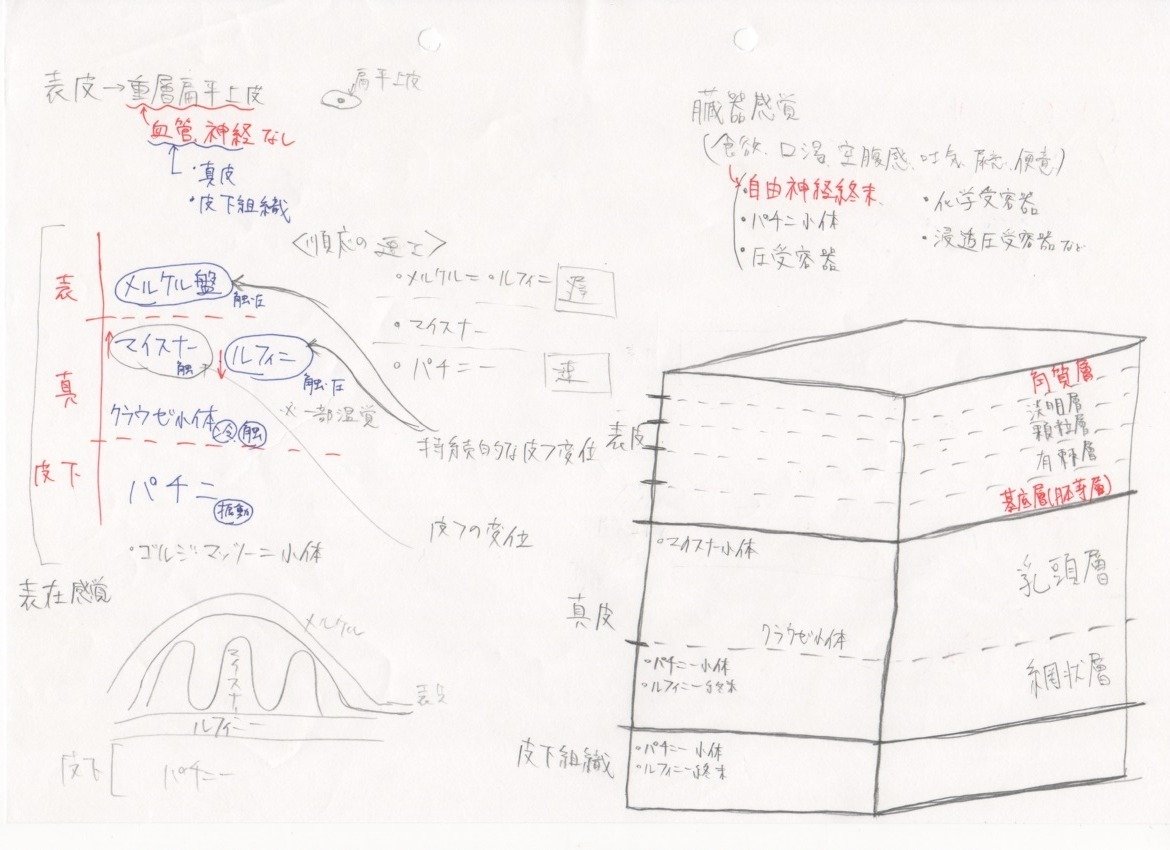 表皮→重層扁平上皮
扁平上皮
血管、神経なし
・真皮
・皮下組織
<順応の速さ>
表
メルケル盤
触・圧
・メルケル=・ルフィニ
遅
・マイスナー
・パチニー
速
真
マイスナー
触
ルフィニ
触・圧
※一部温覚
クラウゼ小体
冷
触
持続的な皮フ変位
皮下
パチニ
振動
皮フの変位
・ゴルジ・マッツォーニ小体
表在感覚
メルケル
マイスナー
表皮
ルフィニー
皮下
パチニー
臓器感覚
(食欲、口渇、空腹感、吐気、尿意、便意)
・自由神経終末
・パチニ小体
・圧受容器
・化学受容器
・浸透圧受容器など
表皮
角質層
淡明層
顆粒層
有棘層
基底層(胚芽層)
真皮
・マイスナー小体
乳頭層
クラウゼ小体
・パチニー小体
・ルフィニー終末
網状層
皮下組織
・パチニー小体
・ルフィニー終末